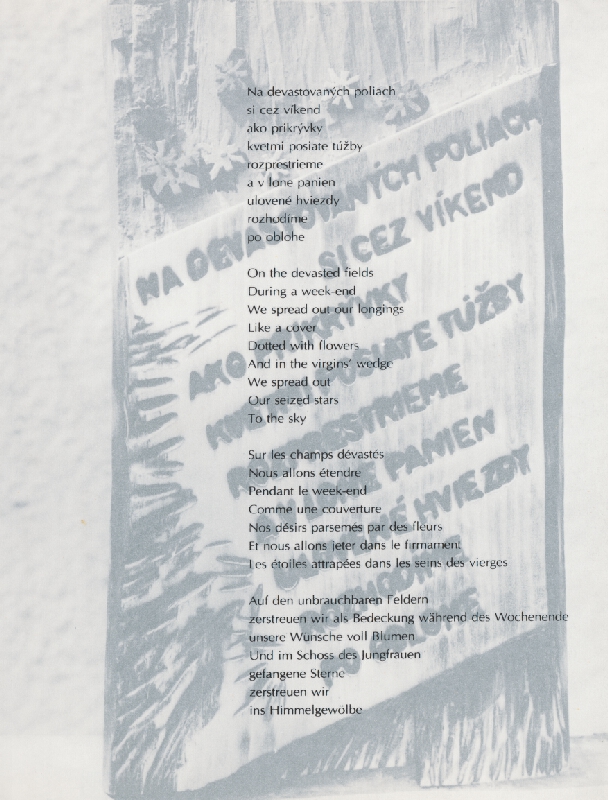 Na devastovaných poliach
si cez víkend
ako prikrývky
kvetmi posiate túžby
rozprestrieme
a v lone panien
ulovené hviezdy
rozhodíme
po oblohe
On the devasted fields
During a week-end
We spread out our longings
Like a cover
Dotted with flowers
And in the virgins' wedge
We spread out
Our seized stars
To the sky
Sur les champs dévastés
Nous allons étendre
Pendant le week-end
Comme une couverture
Nos désirs parsemés par des fleurs
Et nous allons jeter dans le firmament
Les étoiles attrapées dans les seins des vierges
Auf den unbrauchbaren Feldern
zerstreuen wir als Bedeckung während des Wochenende
unsere Wünsche voll Blumen
Und im Schoss des Jungfrauen
gefangene Sterne
zerstreuen wir
ins Himmelgewölbe
NA DEVASTOVANÝCH POLIACH
SI CEZ VÍKEND
AKO PRIKRÝVKY
KVETMI POSIATE TÚŽBY
ROZPRESTRIEME
A V LONE PANIEN
ULOVENÉ HVIEZDY
ROZHODÍME
PO OBLOHE